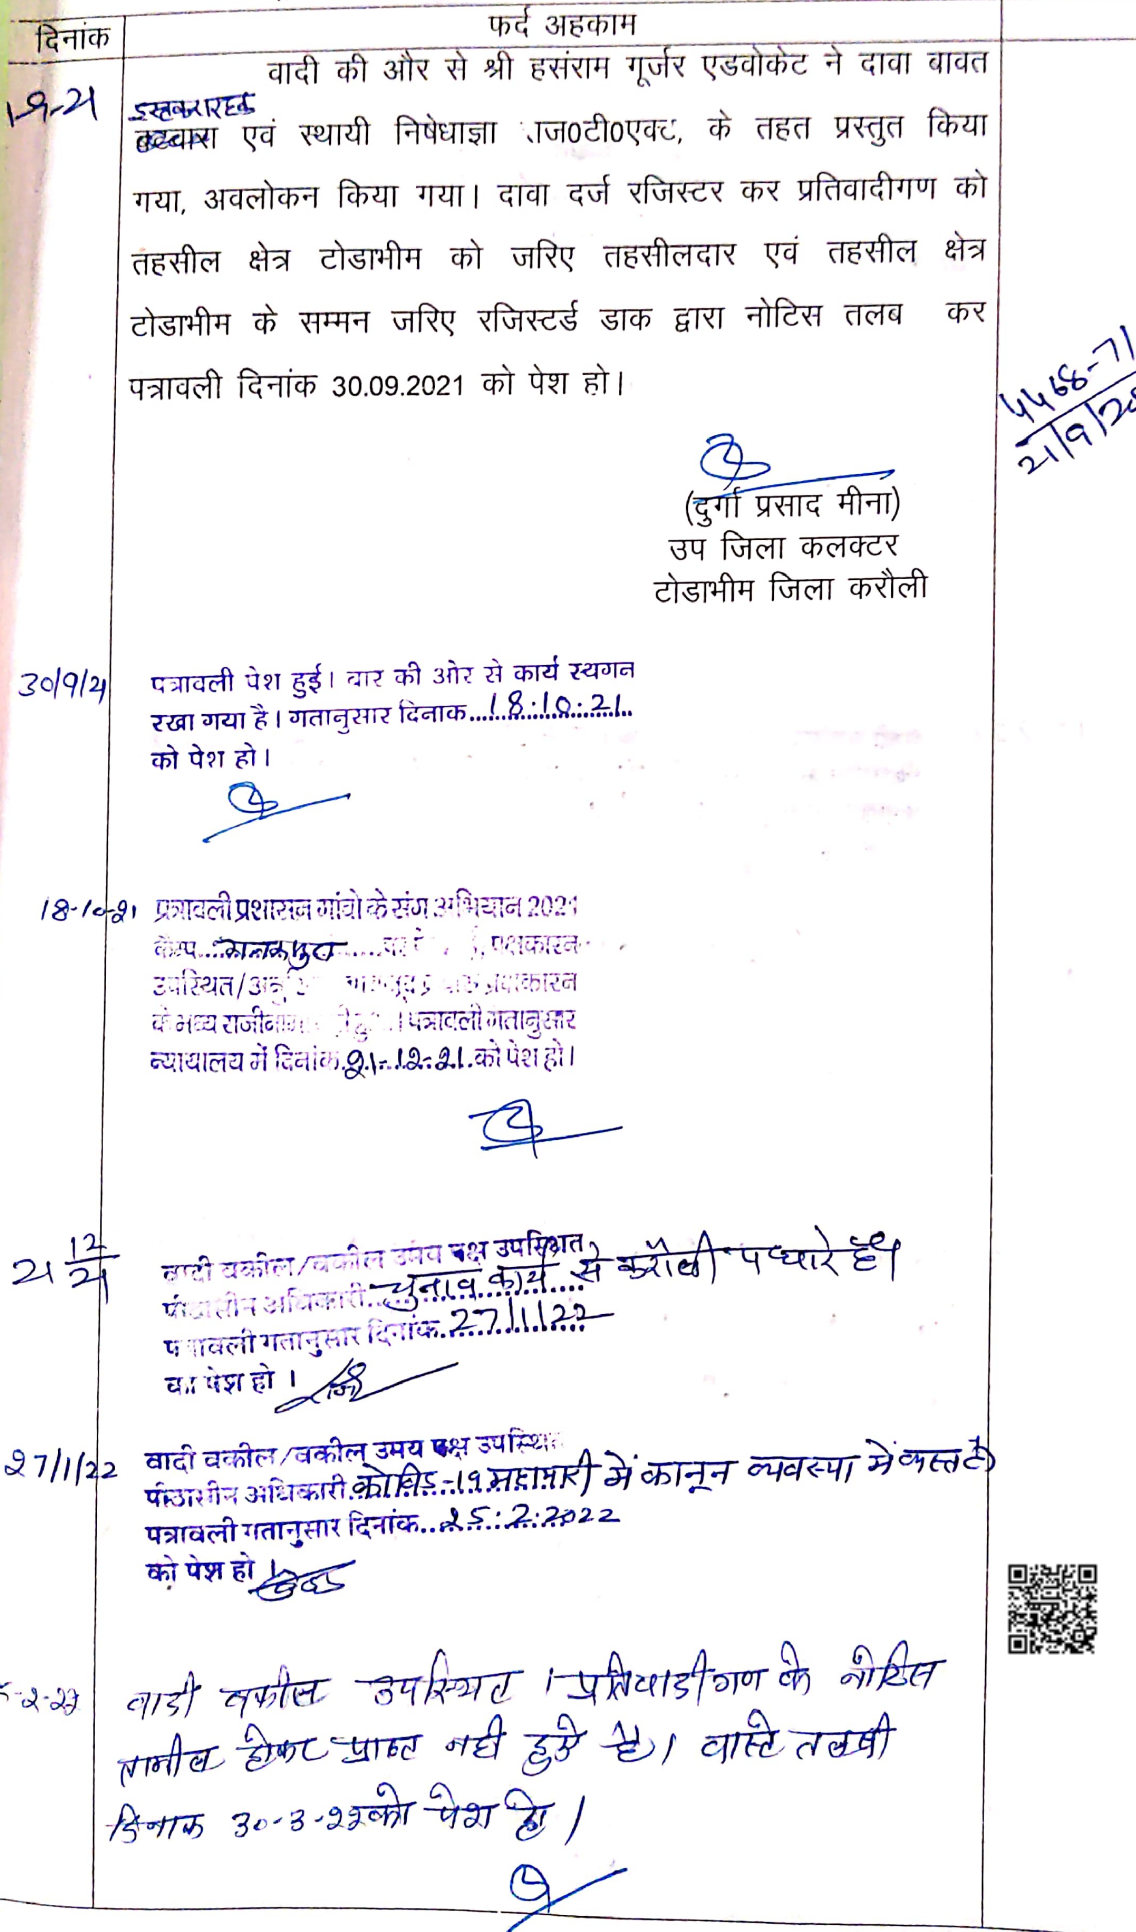 दिनांक
फर्द अहकाम
वादी की और से श्री हसंराम गूर्जर एडवोकेट ने दावा बावत
इस्तकरारहक
बटवारा एवं स्थायी निषेधाज्ञा ाज0टी0एक्ट, के तहत प्रस्तुत किया
गया, अवलोकन किया गया। दावा दर्ज रजिस्टर कर प्रतिवादीगण को
तहसील क्षेत्र टोडाभीम को जरिए तहसीलदार एवं तहसील क्षेत्र
टोडाभीम के सम्मन जरिए रजिस्टर्ड डाक द्वारा नोटिस तलब कर
पत्रावली दिनांक 30.09.2021 को पेश हो।
4468-71
21/9/20
(दुर्गा प्रसाद मीना)
उप जिला कलक्टर
टोडाभीम जिला करौली
30/9/21
पत्रावली पेश हुई। वार की ओर से कार्य स्थगन
रखा गया है। गतानुसार दिनाक...18:10:21..
को पेश हो।
18-10-21
पत्रावली प्रशासन गांवो के संग अभियान 2021
केम्प पक्षकारन
उपस्थित/ पक्षकारन
के मध्य राजीनामा । पत्रावली गतानुसार
न्यायालय में दिनांक.21-12-21.को पेश हो।
21 12/21
वादी वकील/वकील उमय पक्ष उपस्थित
पीठासीन अधिकारी...चुनाव कार्य से करौली पधारे हैं।
पत्रावली गतानुसार दिनांक..27/1/22
का पेश हो ।
27/1/22
वादी वकील/वकील उमय पक्ष उपस्थित
पीठासीन अधिकारी.कोविड-19 महामारी में कानून व्यवस्था में व्यस्त है
पत्रावली गतानुसार दिनांक...25:2:2022
को पेश हो ।
वादी वकील उपस्थित । प्रतिवादीगण के नोटिस
तामील होकर प्राप्त नही हुऐ है। वास्ते तलबी
दिनाक 30-3-22को पेश हो।